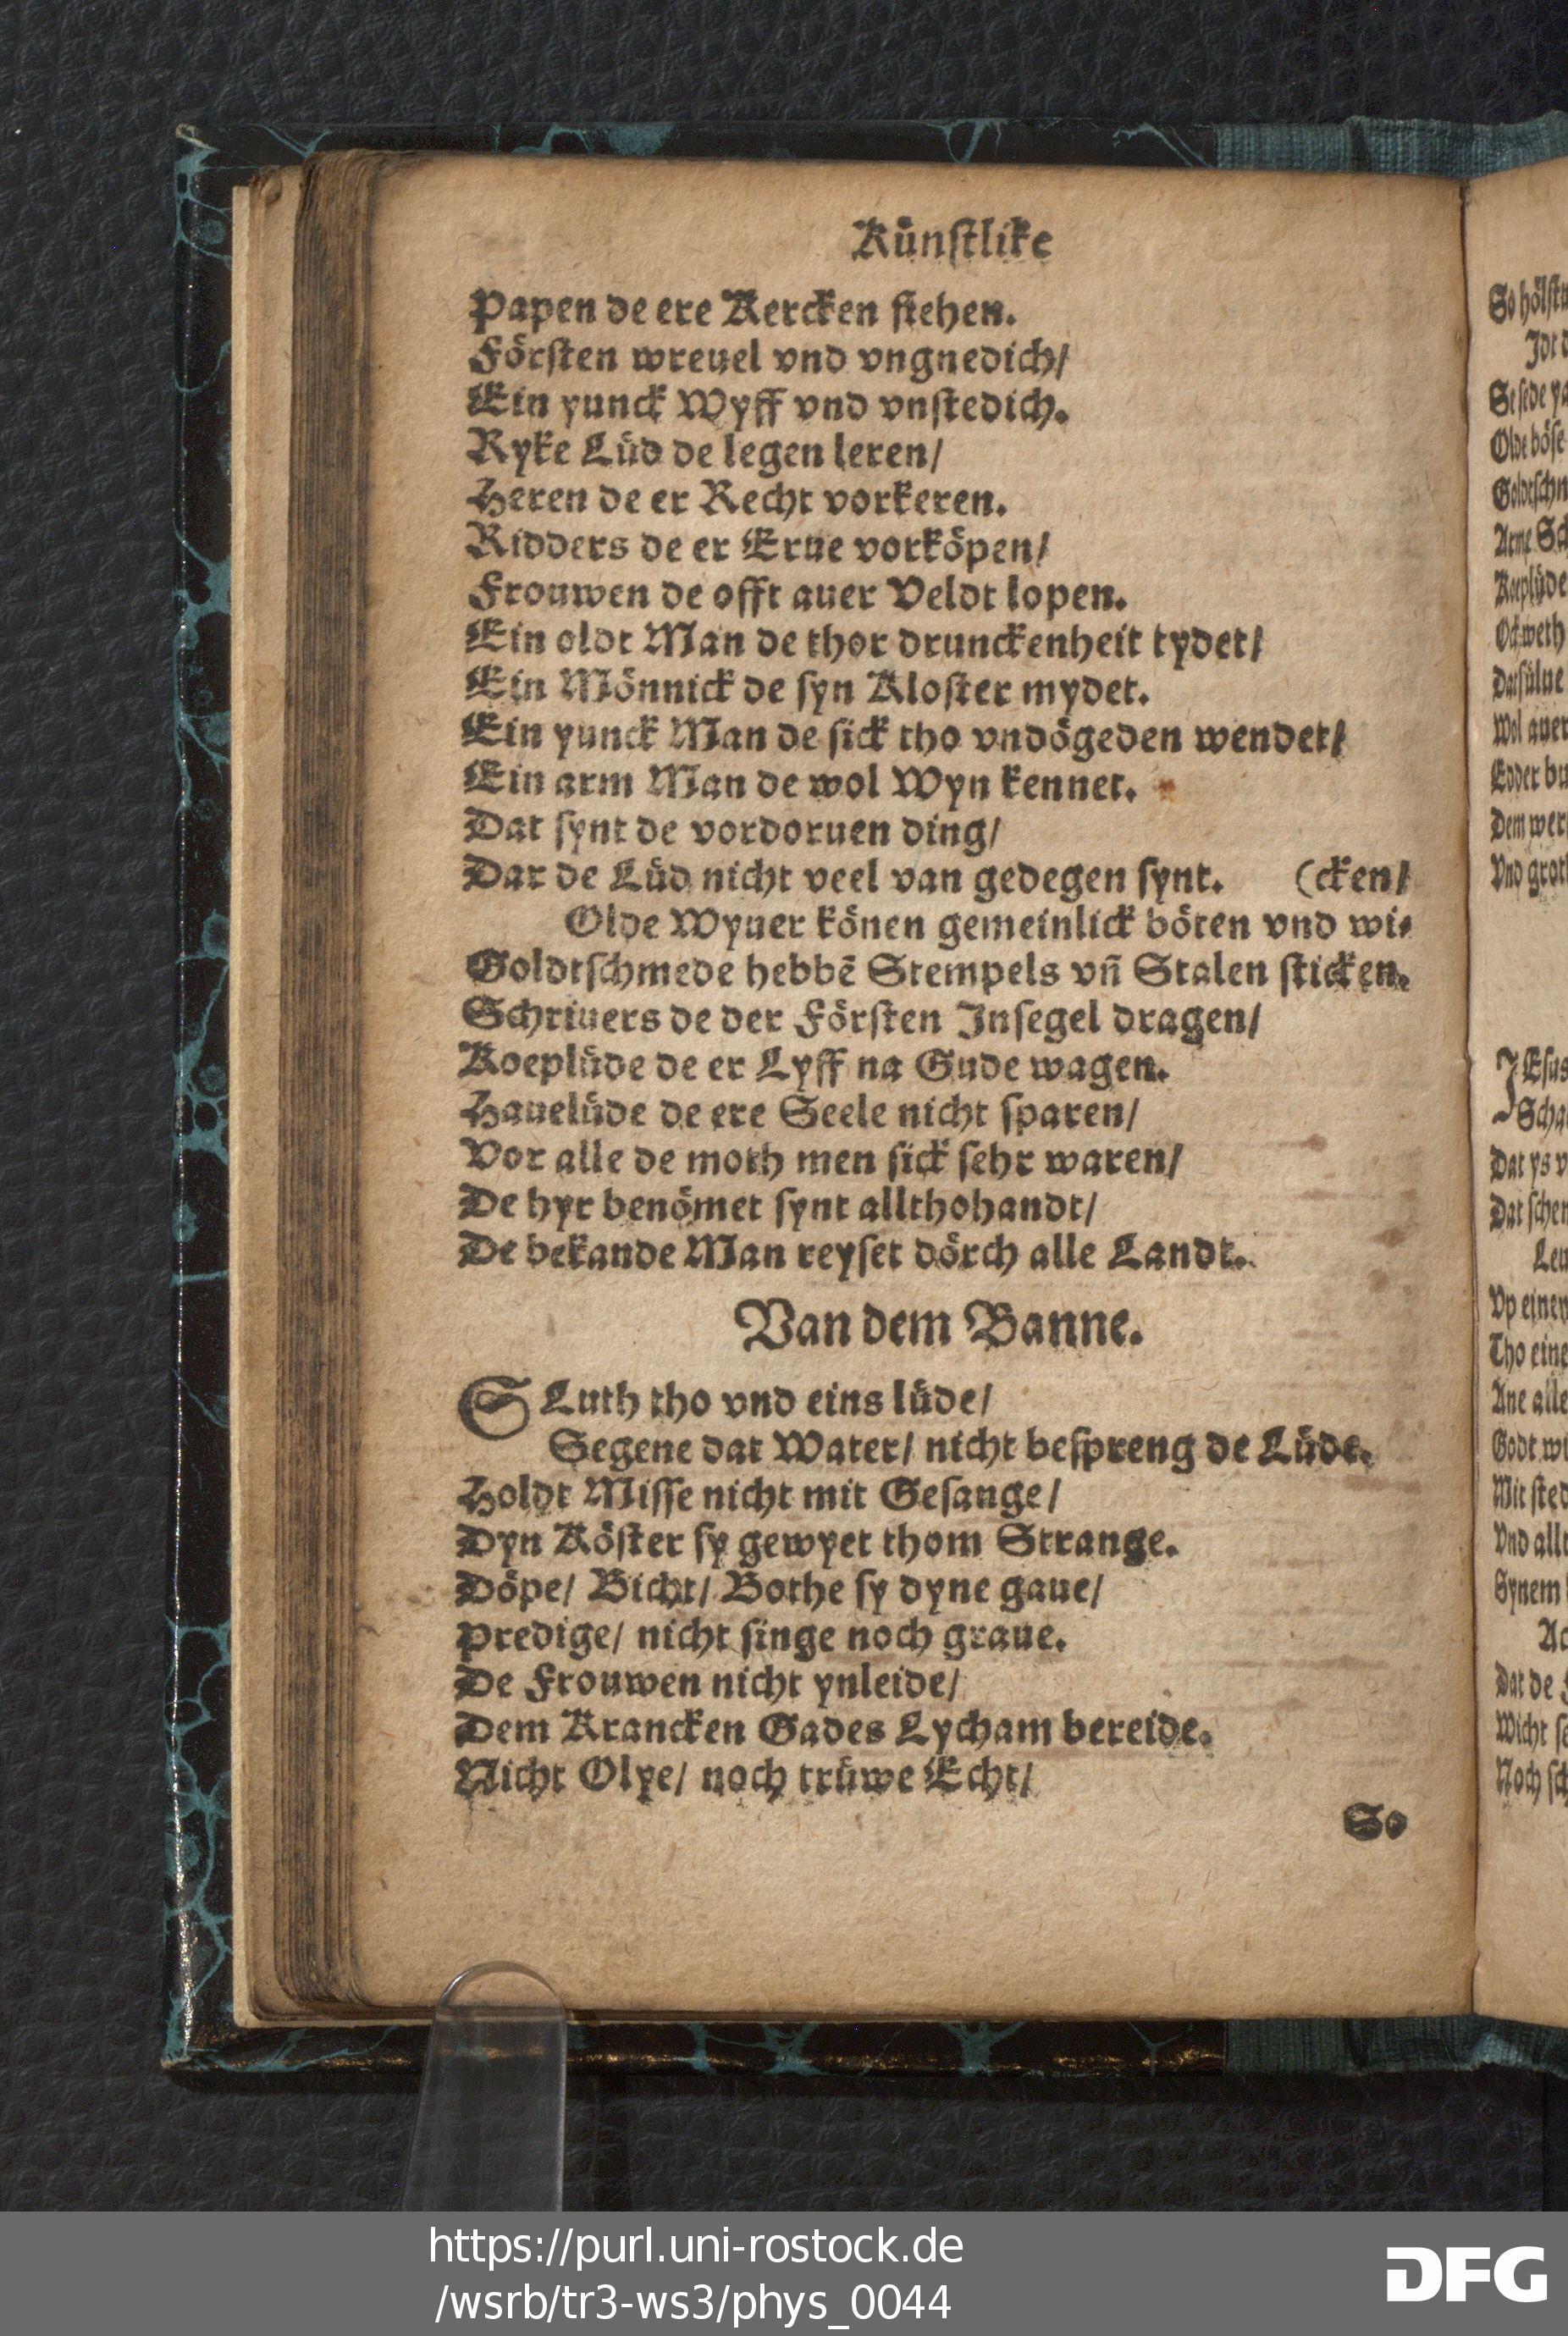 Künstlike
Papen de ere Kercken flehen.
Försten wreuel vnd vngnedich/
Ein yunck Wyff vnd vnstedich.
Ryke Lüd de legen leren/
Heren de er Recht vorkeren.
Ridders de er Erue vorköpen/
Frouwen de offt auer Veldt lopen.
Ein oldt Man de thor drunckenheit tydet/
Ein Mönnick de syn Kloster mydet.
Ein yunck Man de sick tho vndögeden wendet/
Ein arm Man de wol Wyn kennet.
Dat synt de vordoruen ding/
Dar de Lüd nicht veel van gedegen synt. (cken/
Olde Wyuer könen gemeinlick böten vnd wi-
Goldtschmede hebbē Stempels vñ Stalen sticken.
Schriuers de der Försten Insegel dragen/
Koeplüde de er Lyff na Gude wagen.
Hauelüde de ere Seele nicht sparen/
Vor alle de moth men sick sehr waren/
De hyr benömet synt allthohandt/
De bekande Man reyset dörch alle Landt.
Van dem Banne.
SLuth tho vnd eins lüde/
Segene dat Water/ nicht bespreng de Lüde.
Holdt Misse nicht mit Gesange/
Dyn Köster sy gewyet thom Strange.
Döpe/ Bicht/ Bothe sy dyne gaue/
Predige/ nicht singe noch graue.
De Frouwen nicht ynleide/
Dem Krancken Gades Lycham bereide.
Nicht Olye/ noch trüwe Echt/
So
So
Olde böse
Dat ys
Vp einen
Ane alle
https://purl.uni-rostock.de
/wsrb/tr3-ws3/phys_0044
DFG